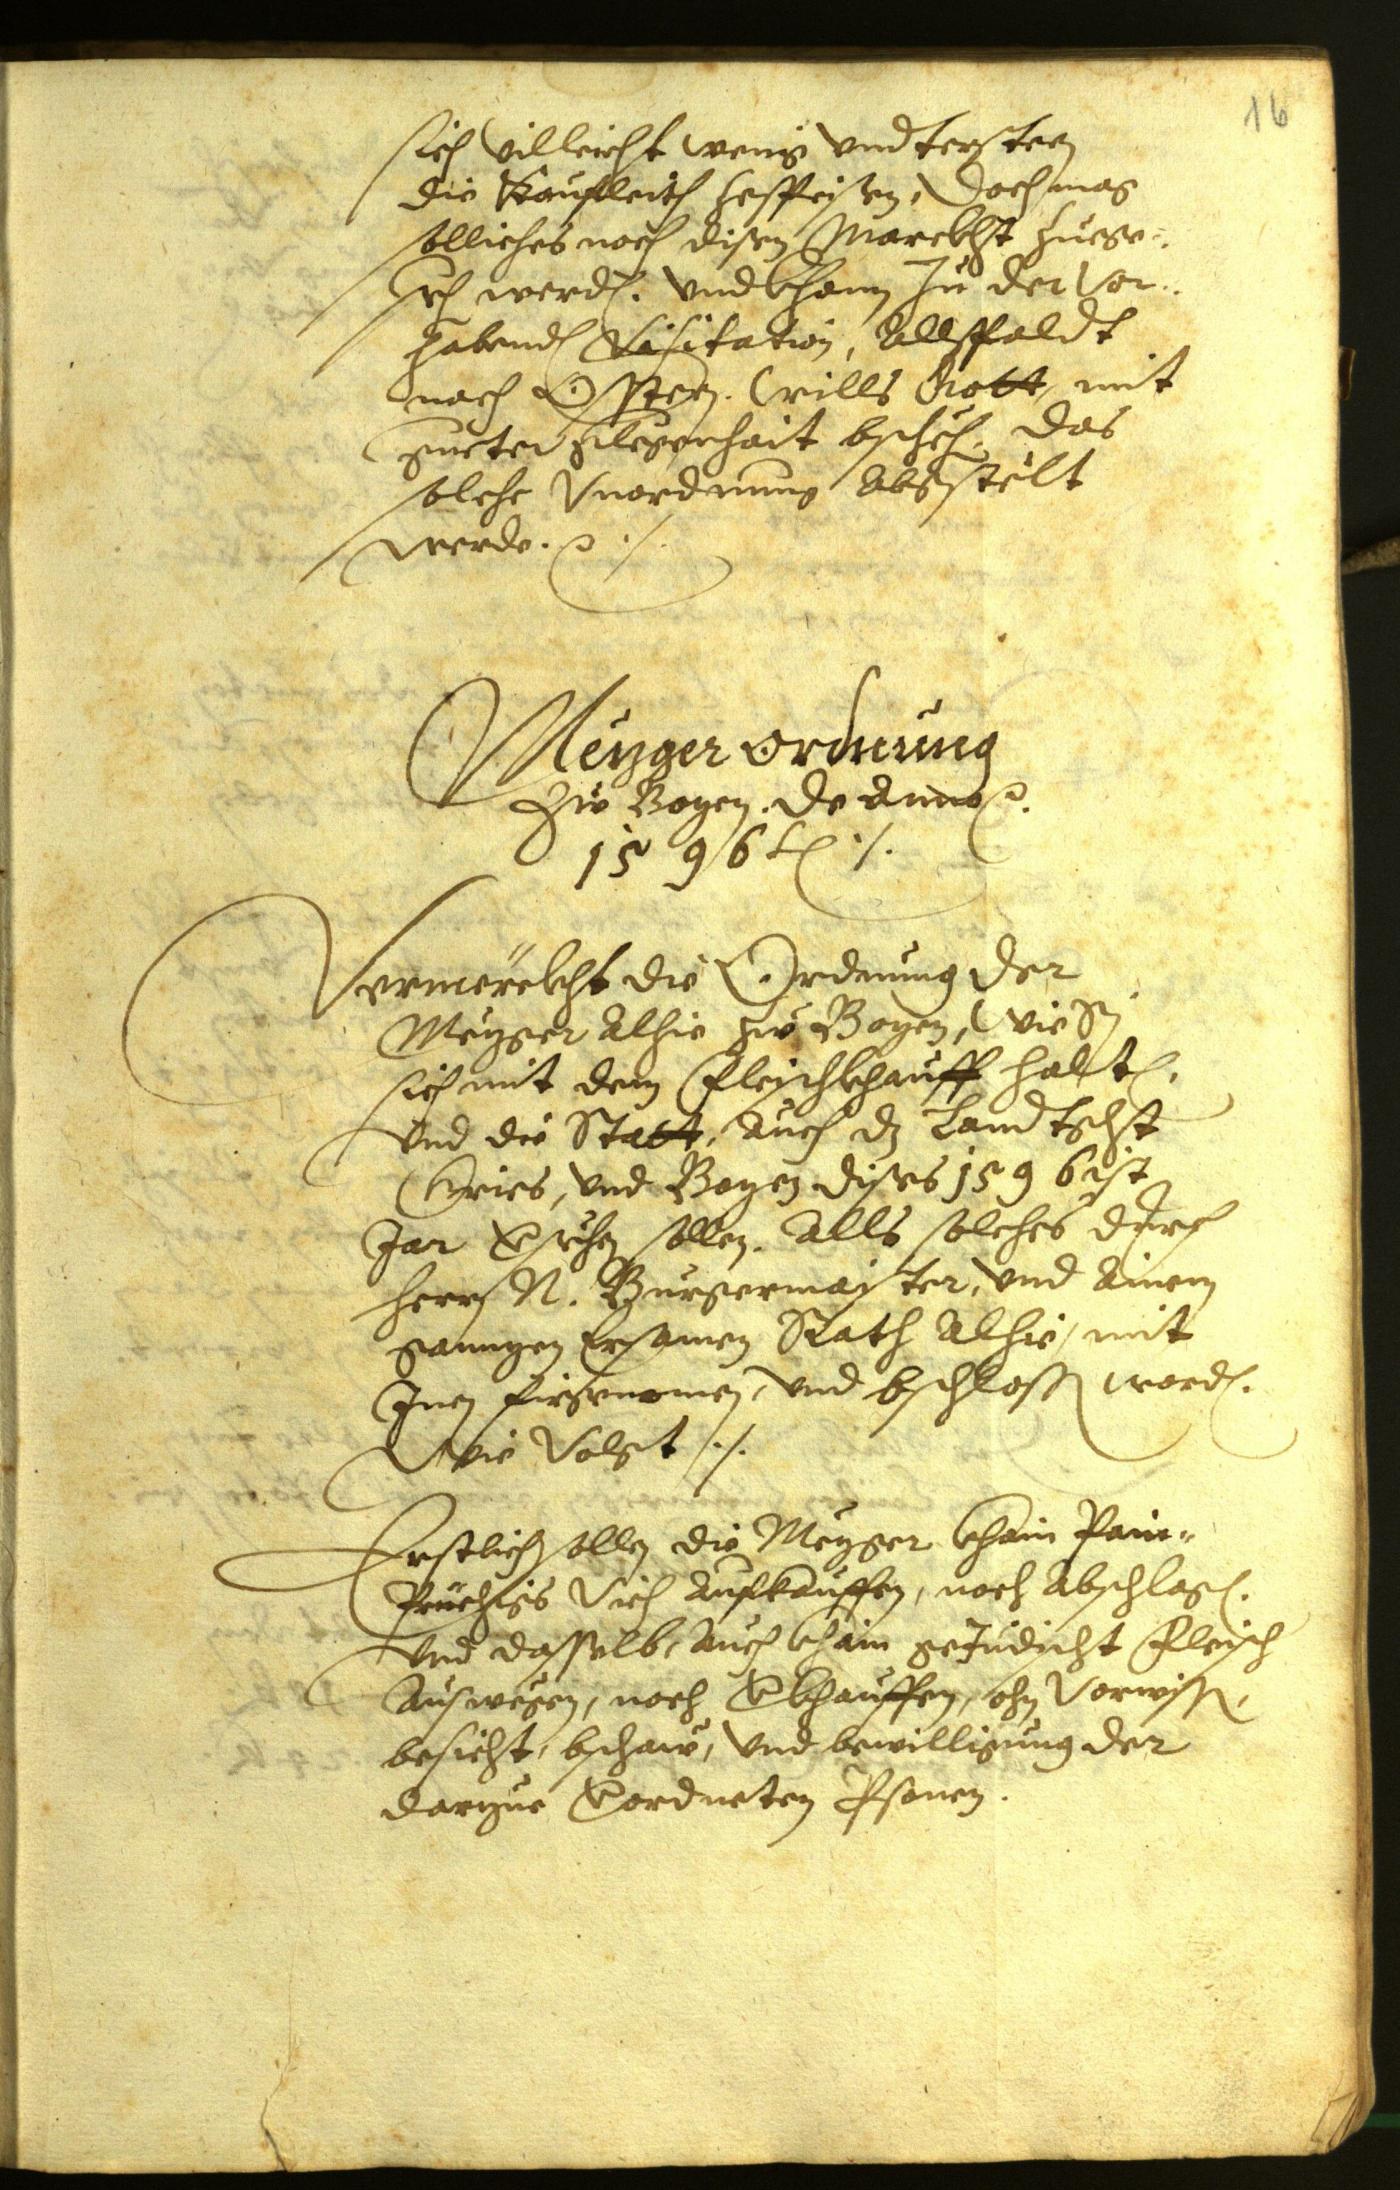 16
sich villeicht wenig vndtersteen
die Kaufleith zespeisen, Doch mag
solliches noch disen Marckht zuege¬
sech werd. vnd khann zu der Vor¬
habend Visitation, Allspaldt
nach Ostern. wills Gott, mit
gueter glegenhait bscheh, das
solche Vnordnung Abgstelt
werde. ./.
Metzger ordnung
zw Botzen. de Anno
1596te ./.
Vermerckht die Ordnung der
Metzger Alhie zw Botzen, wie Sy
sich mit dem Fleischkhauff halt.
vnd die Statt, Auch dz Landtgst
Gries, vnd Botzen dises 1596ist
Jar Versehen sollen. Alls solches durch
herrn N. Burgermaister, vnd Ainem
ganntzen Ersamen Rath Alhie, mit
Inen fürgenomen, vnd bschloss word.
Wie Volgt ./.
Erstlich sollen die Metzger khain Pain¬
Prüchigs Vich Aufkauffen, noch Abschlag.
vnd dasselb, Auch khain geJudischt Fleisch
Auswegen, noch Verkhauffen, ohn Vorwissn,
besicht, bschaw, vnd bewilligung der
dartzue Verordneten Psonen.